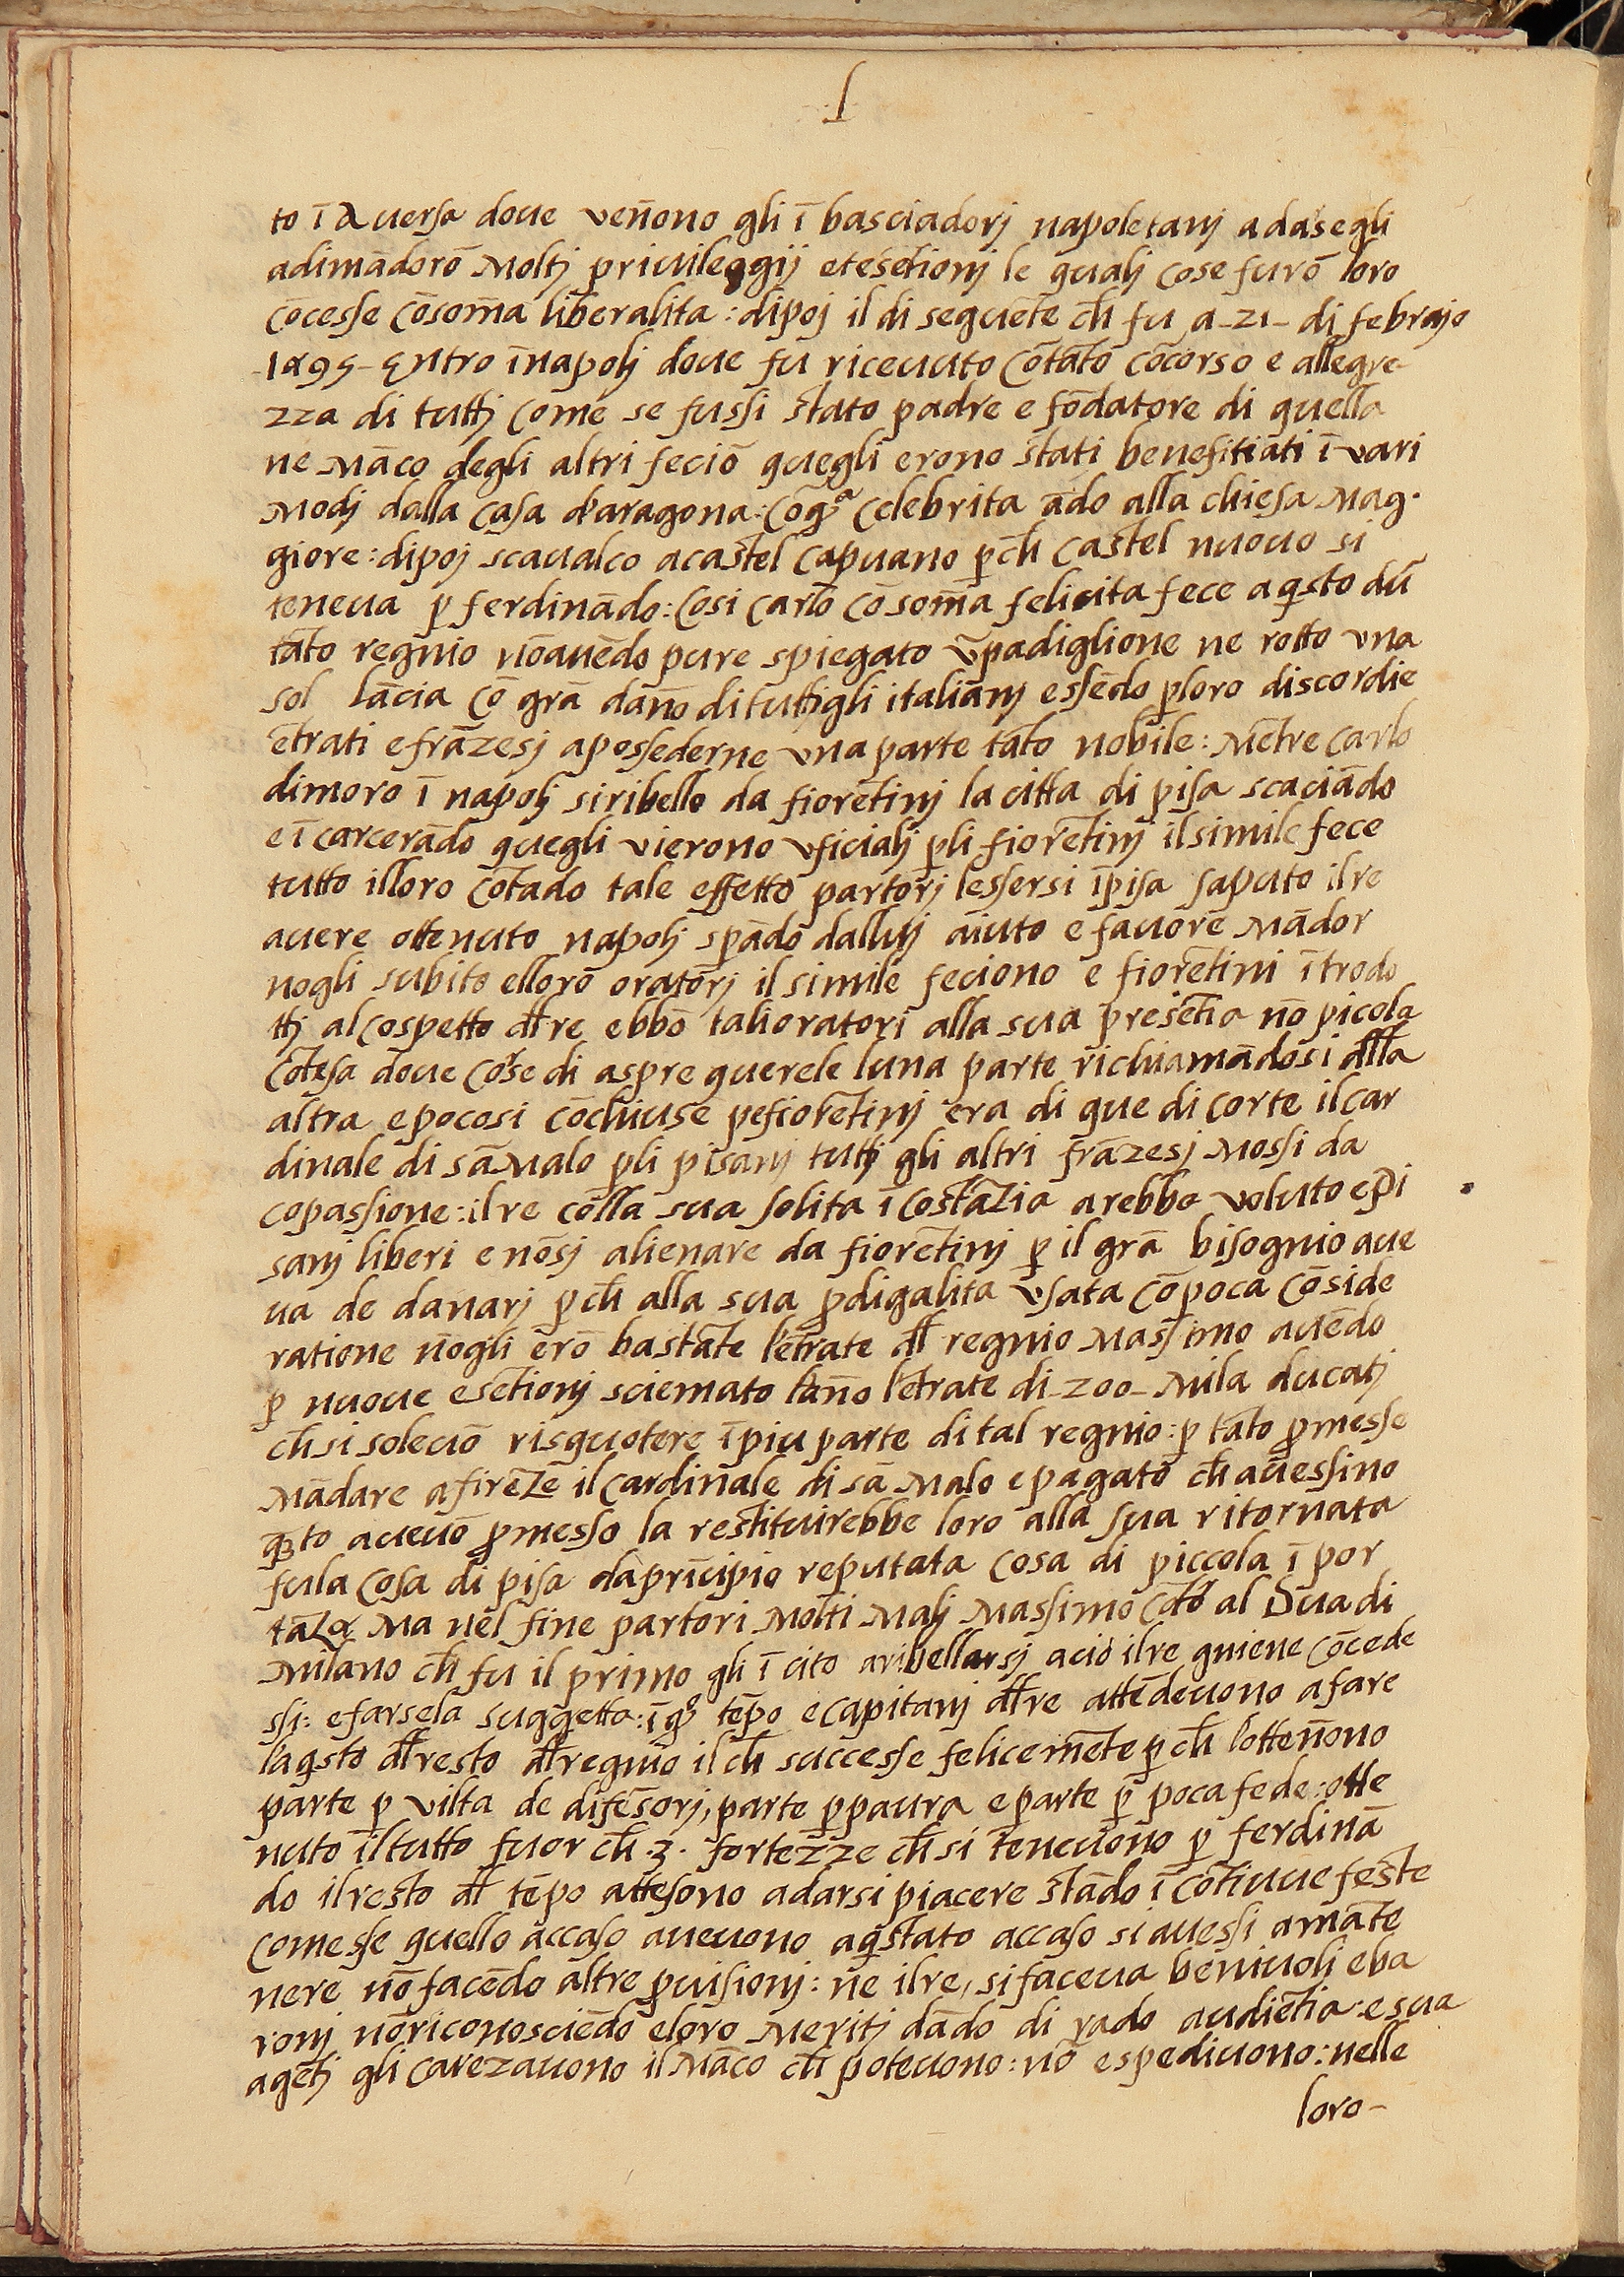 ſ
to ī aversa doue veñono gli ī basciadorj napoletanj a da segli
adimādorō Moltj priuileggij etesētionj le qualj cose furō loro
cōcesse cōsom̄a liberalita : dipoj il di seguēte ch̄ fu a-21- di febrajo
-1495- Entro ī napolj doue fu riceuuto cōtāto cōcorso e allegre-
zza di tuttj come se fussi stato padre e fōdatore di quella
ne Māco degli altri feciō quegli erono stati benefitiati ī vari
Modj dalla casa d'aragona : cō gͣ celebrita ādo alla chiesa Mag.
giore : dipoj scaualco a castel capuano p̄ch̄ castel nuouo si
teneua p̄ ferdināado : Cosi carlo cō som̄a felicita fece aq̄sto dū
tāto regnio nōauēdo pure spiegato ū padiglione ne rotto vna
sol lācia cō grā dan̄o di tuttigli italianj essēdo p̄loro discordie
ētrati e frāzesj apossederne vna parte tāto nobile : Mētre carlo
dimoro ī napolj si ribello da fiorētinj la citta di pisa scaciādo
e ī carcerādo quegli vi erono vficialj p̄li fiorētinj il simile fece
tutto illoro cōtado tale effetto partorj lessersi ī pisa saputo il re
auere ottenuto napolj sp̄ādo dalluj aiuto e fauore Mādor
nogli subito elloro oratorj il simile feciono e fiorētini ītrodo
ttj al cospetto dl̄ re ebbō talioratori alla sua presētia nō picola
cōtesa doue corse di aspre querele luna parte richiamādosi dl̄la
altra e pocosi cōchiuse pefiorētinj era di que di corte il car
dinale di sā Malo p̄li pisanj tuttj gli altri frāzesj Mossi da
copassione : il re cōlla sua solita ī costāzia arebbe voluto e pi
sanj liberi e nōsj alienare da fiorētinj p̄ il grā bisognio aue
ua de danarj p̄ch̄ alla sua p̄digalita vsata cō poca cōside
ratione nōgli erō bastāte l'ētrate dl̄ regnio Massimo auēdo
p̄ nuoue esētionj sciemato lan̄o l'ētrate di-200-Mila ducatj
ch̄ si soleuō risquotere ī piu parte di tal regnio : p̄ tāto p̄messe
Mādare a firēze il cardinale di sā Malo e pagato ch̄ auessino
q̄to aueuō p̄messo la restituirebbe loro alla sua ritornata
fu la cosa di pisa da prīcipio reputata cosa di piccola ī por
tāza Ma nel fine partori Molti Malj Massimo cōtō al Duca di
Milano ch̄ fu il primo gli ī cito a ribellarsj acio il re gniene cōcede
ssi : e farsela suggetta : ī qͦ tēpo e capitanj dl̄ re attēdeuono a fare
l'aq̄sto dl̄ resto dl̄ regnio il ch̄ successe felicemēte p̄ch̄ l'otten̄ono
parte p̄ vilta de difēsorj, parte p̄ paura e parte p̄ poca fede : otte
nuto il tutto fuor ch̄ .3. fortezze ch̄ si teneuono p̄ ferdinā
do il resto dl̄ tēpo attesono a darsi piacere stādo ī cōtinue feste
comesse quello accaso aueuono aq̄stato accaso si auessi a māte
nere nō facēdo altre p̄uisionj : ne il re, si faceua beniuoli e ba
ronj nō riconosciēdo eloro Meritj dādo di rado audiētia : e sua
agētj gli carezauono il Māco ch̄ poteuono : nō espediuono : nelle
loro-